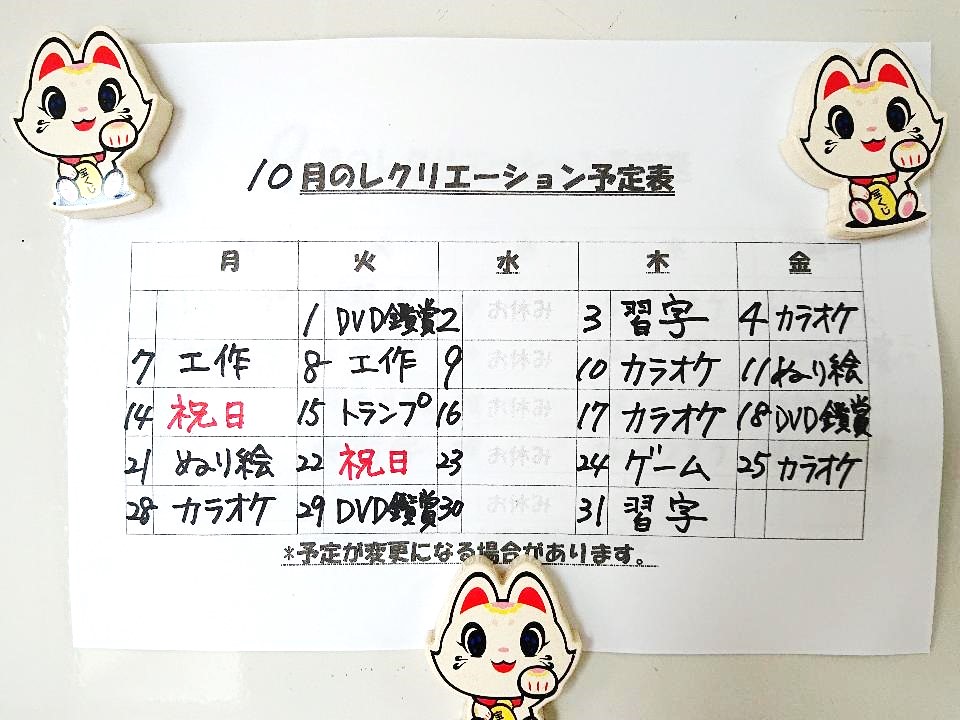 10月のレクリエーション予定表
月 火 水 木 金
1 DVD鑑賞 2 3 習字 4 カラオケ
7 工作 8 工作 9 10 カラオケ 11 ぬり絵
14 祝日 15 トランプ 16 17 カラオケ 18 DVD鑑賞
21 ぬり絵 22 祝日 23 24 ゲーム 25 カラオケ
28 カラオケ 29 DVD鑑賞 30 31 習字
*予定が変更になる場合があります。